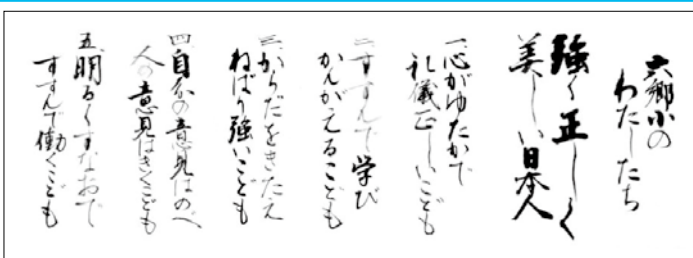 六郷小の
わたしたち
強く正しく
美しい日本人
一心がゆたかで
礼儀正しいこども
二すすんで学び
かんがえるこども
三からだをきたえ
ねばり強いこども
四自分の意見はのべ
人の意見はきくこども
五明るくすなおで
すすんで働くこども